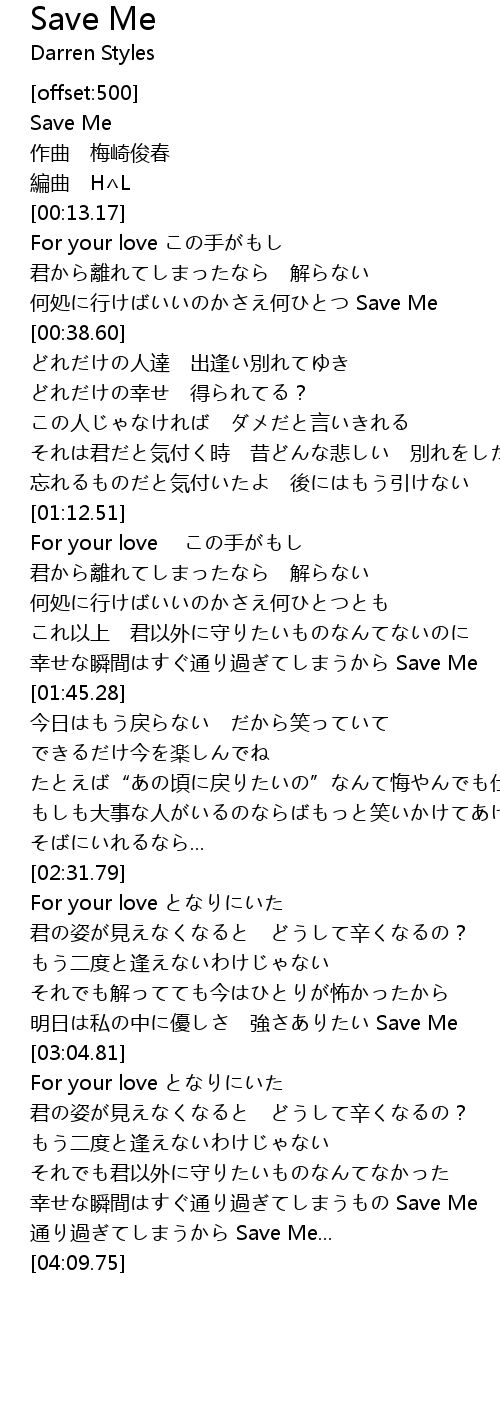 Save Me
Darren Styles
[offset:500]
Save Me
作曲　梅崎俊春
編曲　H∧L
[00:13.17]
For your love この手がもし
君から離れてしまったなら　解らない
何処に行けばいいのかさえ何ひとつ Save Me
[00:38.60]
どれだけの人達　出逢い別れてゆき
どれだけの幸せ　得られてる？
この人じゃなければ　ダメだと言いきれる
それは君だと気付く時　昔どんな悲しい　別れをした
忘れるものだと気付いたよ　後にはもう引けない
[01:12.51]
For your love　 この手がもし
君から離れてしまったなら　解らない
何処に行けばいいのかさえ何ひとつとも
これ以上　君以外に守りたいものなんてないのに
幸せな瞬間はすぐ通り過ぎてしまうから Save Me
[01:45.28]
今日はもう戻らない　だから笑っていて
できるだけ今を楽しんでね
たとえば“あの頃に戻りたいの”なんて悔やんでも仕
もしも大事な人がいるのならばもっと笑いかけてあげ
そばにいれるなら…
[02:31.79]
For your love となりにいた
君の姿が見えなくなると　どうして辛くなるの？
もう二度と逢えないわけじゃない
それでも解ってても今はひとりが怖かったから
明日は私の中に優しさ　強さありたい Save Me
[03:04.81]
For your love となりにいた
君の姿が見えなくなると　どうして辛くなるの？
もう二度と逢えないわけじゃない
それでも君以外に守りたいものなんてなかった
幸せな瞬間はすぐ通り過ぎてしまうもの Save Me
通り過ぎてしまうから Save Me…
[04:09.75]